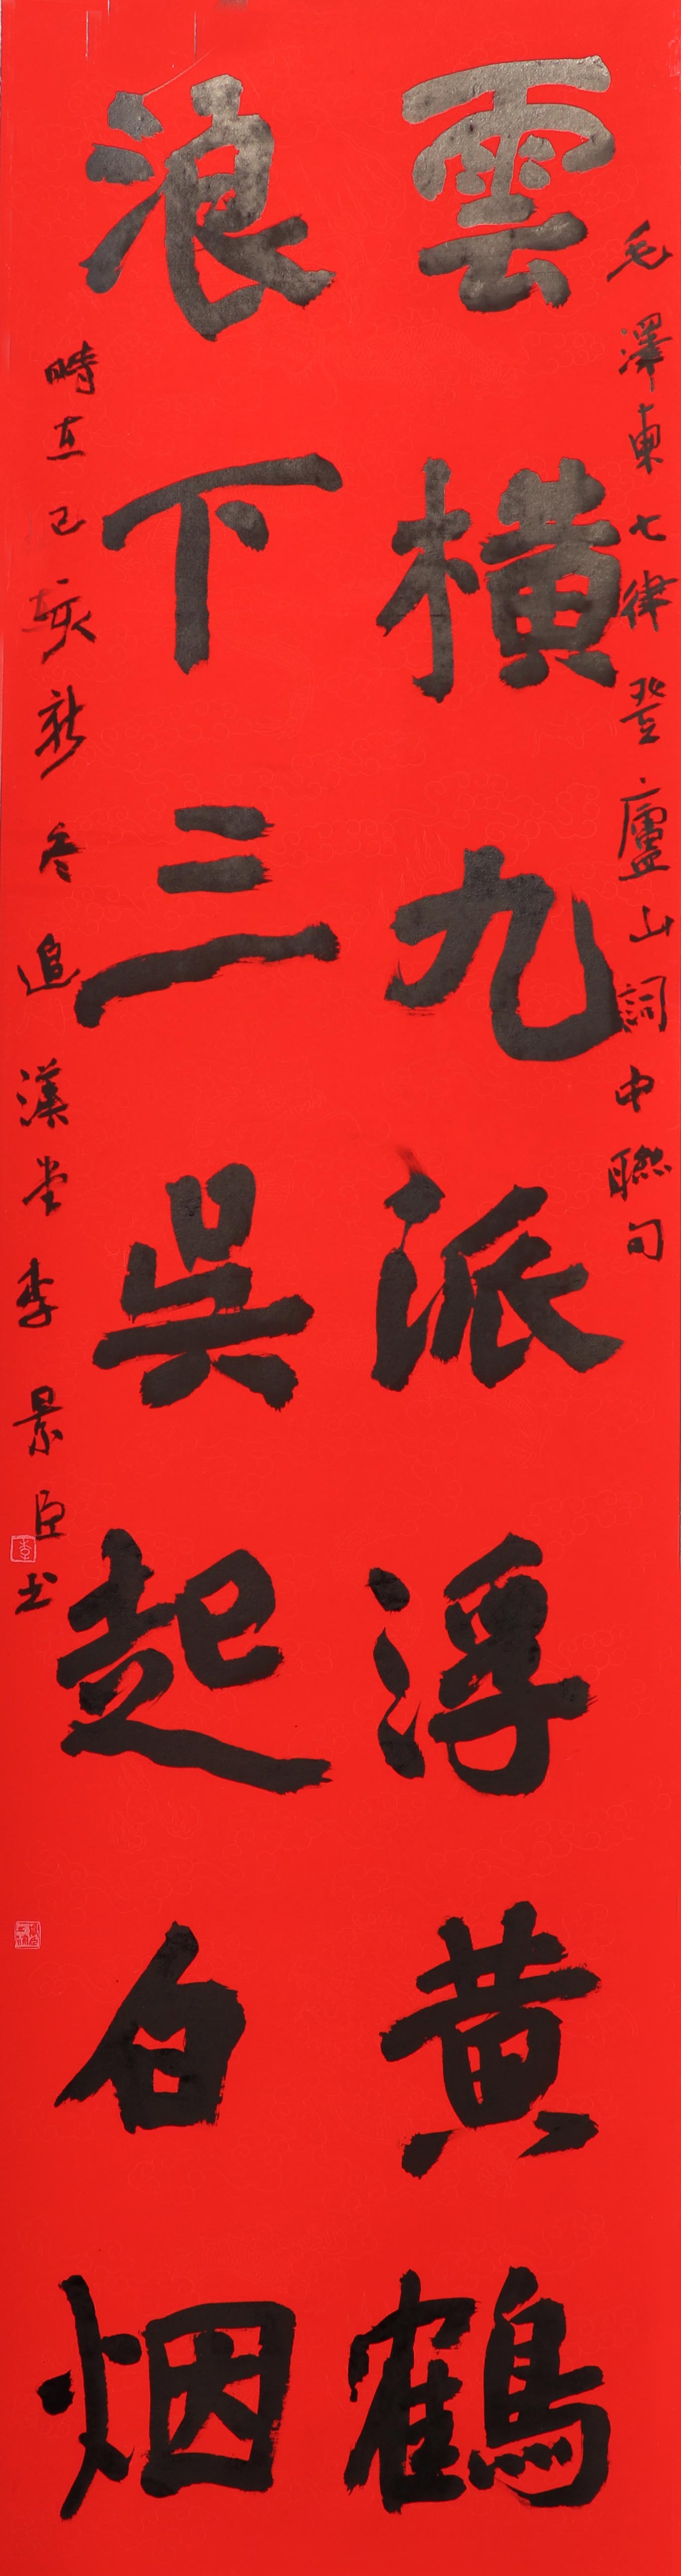 毛澤東七律登廬山詞中聯句
雲橫九派浮黃鶴
浪下三吳起白烟
時在己亥新冬追漢堂李景臣书
李